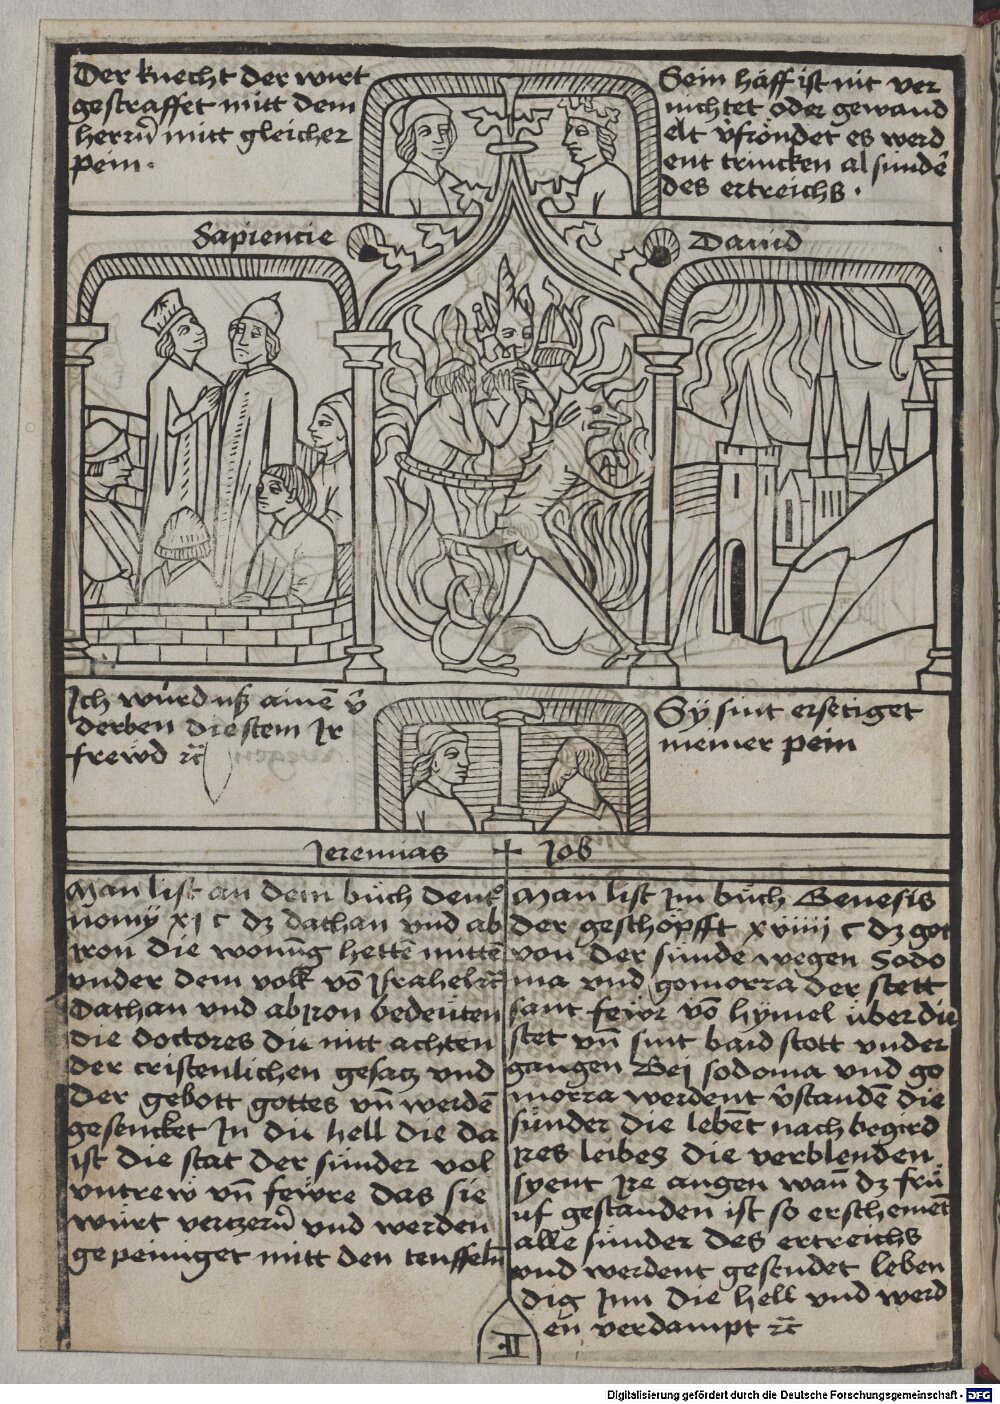 Der knecht der wirt
gestraffet mitt dem
herrn̄ mitt gleicher
pein ·
Sein häff ist nit ver
nichtet oder gewand
elt v̄fröndet es werd
ent trincken al sündē
des ertreichs ·
Sapiencie
Dauid
Ich würd uß ainē v̄
derben die stem Ir
frewd rc̄
Sy sint ersetiget
meiner pein
Jeremias
Job
Man list an dem büch deut°
nomy xj c dz dathan vnd ab
jron die wonūg hettē mittē
vnder dem volk vō Jsrahel rc̄
Dathan vnd abjron bedeüten
die doctores die nitt achten
der cristenlichen gesatz vnd
der gebott gottes vn̄ werdē
gesencket In die hell die da
ist die stat der sünder vol
vntrew vn̄ fewre das sie
würt verczern̄ vnd werden
gepeiniget mitt den teuffeln̄
Man list Jm büch Genesis
der geschöpfft xviiij c dz got
von der sünde wegen Sodo
ma vnd gomorra der stett
sant fewr vō hymel über die
stet vn̄ sint bald stott vnder
gangen Bej sodoma vnd go
morra werdent v̄standē die
sünder die lebēt nach begird
jres leibes die verblenden
syent jre augen wan̄ dz frü
uf gestanden ist so erschemēt
alle sünder des ertreichs
vnd werdent gesendet leben
dig Jnn die hell vnd werd
en verdampt rc̄
·II·
Digitalisierung gefördert durch die Deutsche Forschungsgemeinschaft - DFG